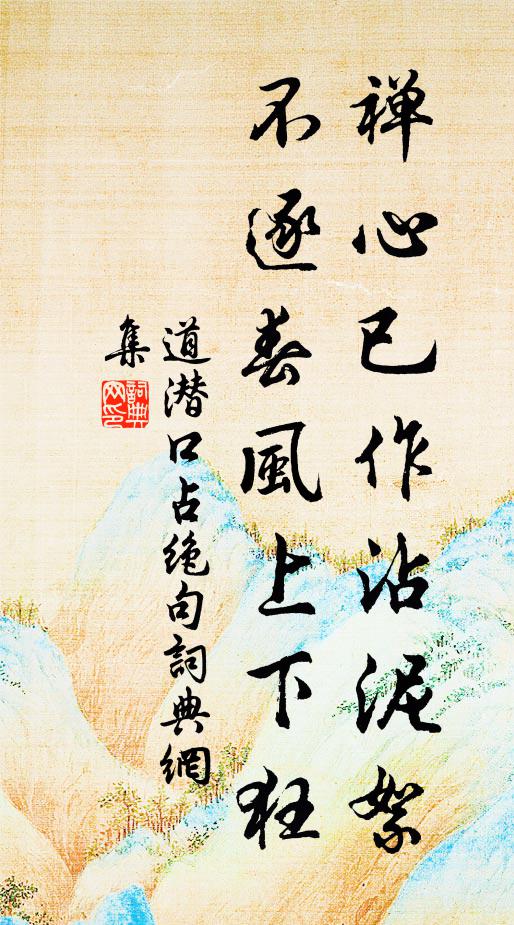 禅心已作沾泥絮
不逐春風上下狂
道潜口占绝句詞典網
集
詞典
网印